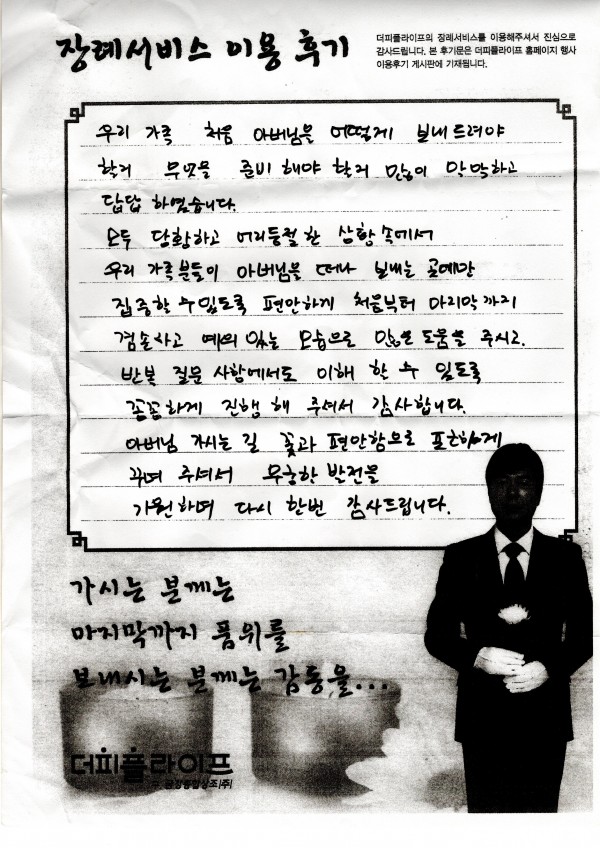 장례서비스 이용 후기
더피플라이프의 장례서비스를 이용해주셔서 진심으로
감사드립니다. 본 후기문은 더피플라이프 홈페이지 행사
이용후기 게시판에 기재됩니다.
우리 가족 처음 아버님을 어떻게 보내드려야
할지 무엇을 준비해야 할지 많이 막막하고
답답 하였습니다.
모두 당황하고 어리둥절 한 상황 속에서
우리 가족분들이 아버님을 떠나 보내는 곳에만
집중할 수 있도록 편안하게 처음부터 마지막 까지
겸손하고 예의 있는 모습으로 많은 도움을 주시고.
반복 질문 사항에서도 이해 할 수 있도록
꼼꼼하게 진행 해 주셔서 감사합니다.
아버님 가시는 길 꽃과 편안함으로 포근하게
꾸며 주셔서 무궁한 발전을
기원하며 다시 한번 감사드립니다.
가시는 분께는
마지막까지 품위를
보내시는 분께는 감동을...
더피플라이프
금강종합상조(주)